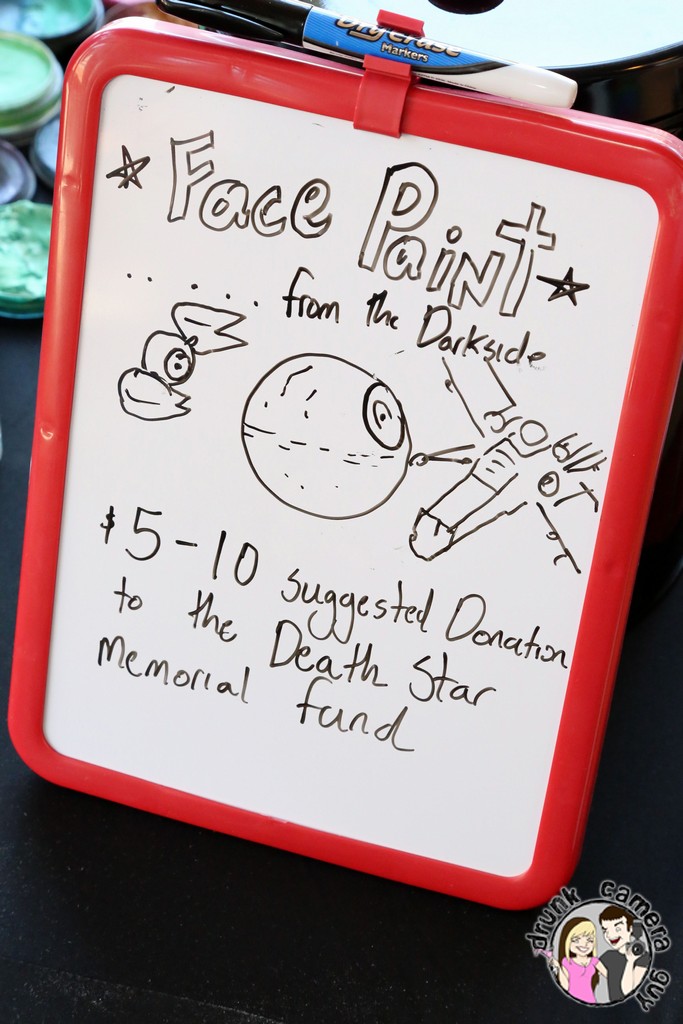 Dry Erase
Markers
Face Paint
..... from the Darkside
$5-10 suggested Donation
to the Death Star
Memorial fund
drunk camera guy